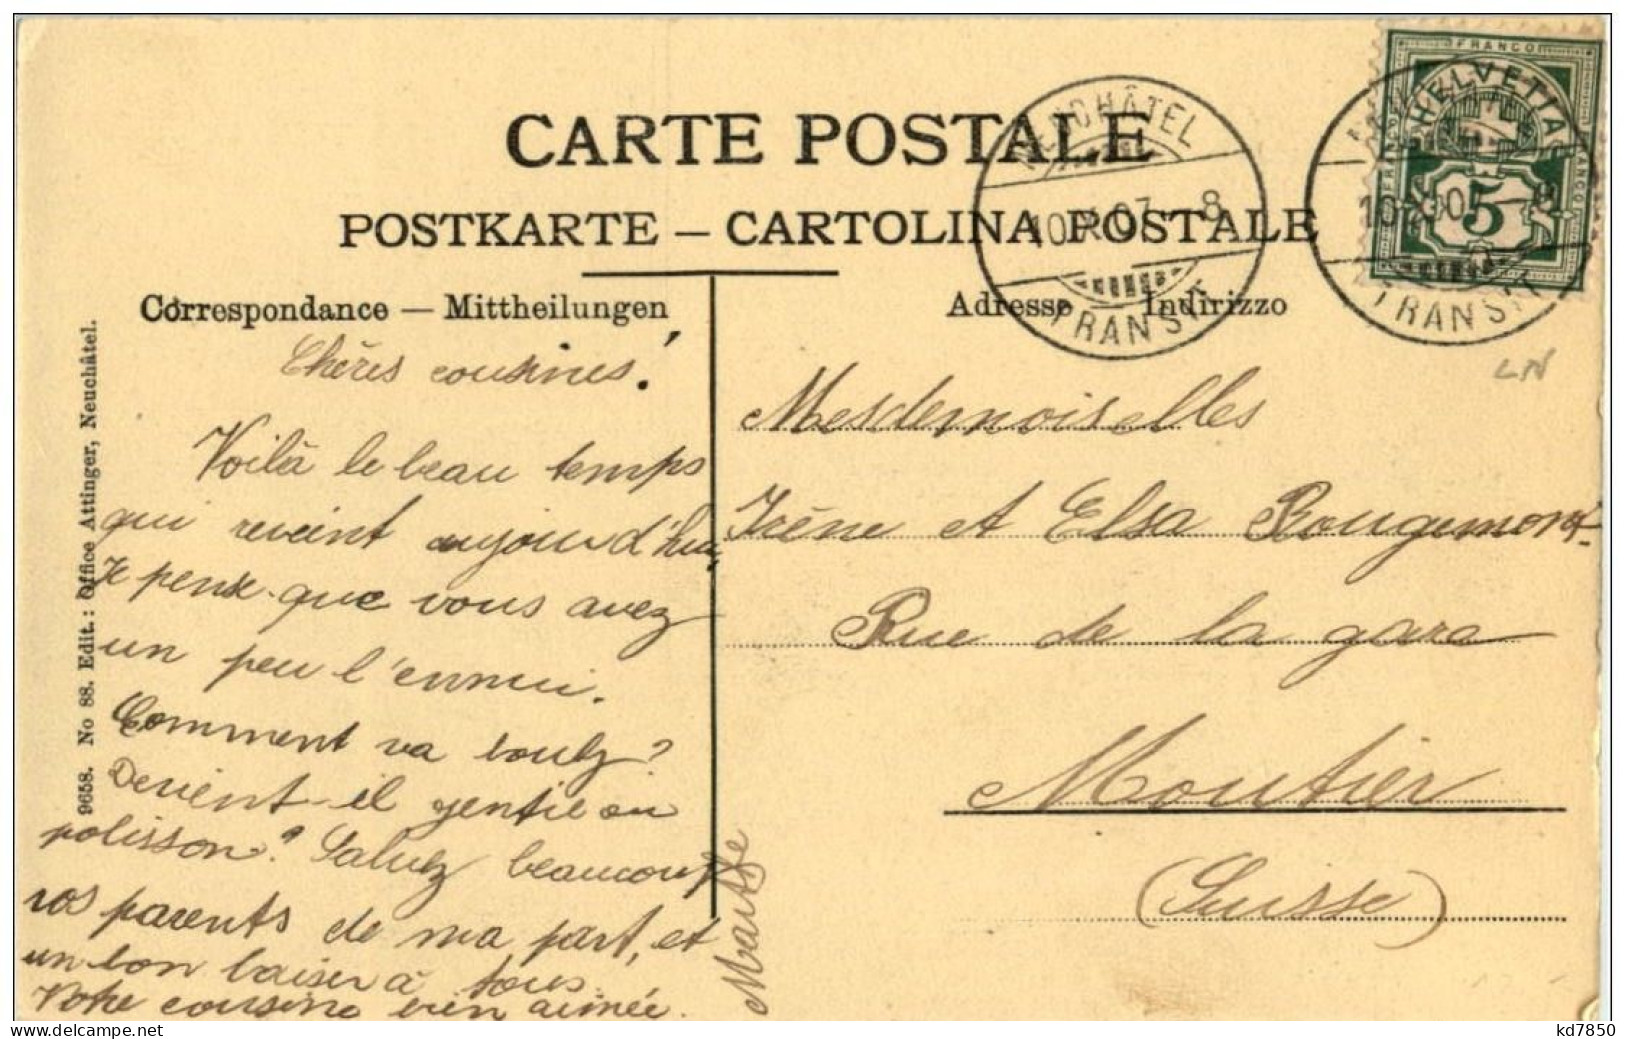 CARTE POSTALE
POSTKARTE — CARTOLINA POSTALE
Correspondance — Mittheilungen
Adresse — Indirizzo
NEUCHÂTEL
10. X. 07. — 8
TRANSIT
FRANCO
HELVETIA
5
10. X. 0
TRANSIT
LN
9658. No 88. Edit. : Office Attinger, Neuchâtel.
Chères cousines!
Voilà le beau temps
qui reveint aujourd'hui,
Je pense que vous avez
un peu l'ennui.
Comment va Loulz?
Devient-il gentil ou
polisson? Saluez beaucoup
vos parents de ma part, et
un bon baiser à tous.
Votre cousine bien aimée.
Marthe
Mesdemoiselles
Irène et Elsa Rougemont
Rue de la gare
Moutier
(Suisse)
kd7850